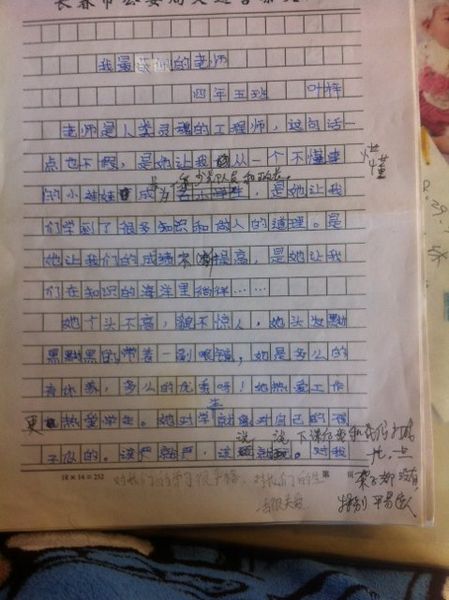 我最敬佩的老师
四年五班 叶梓
老师是人类灵魂的工程师，这句话一
点也不假，是她让我从一个不懂事
懂
的小娃娃成为
少先队员和
，是她让我
们学到了很多知识和做人的道理。是
她让我们的成绩不断提高，是她让我
们在知识的海洋里徜徉……
她个头不高，貌不惊人，她头发黝
黑黝黑的带着一副眼镜，她是多么的
有休养，多么的优秀呀！她热爱工作
生
更热爱学生。她对学就像对自己的孩
说 说 下课
子似的。该严就严，该就。对我
18×14=252
第 页
对我们的学习很严格，对我们的生
活很关爱
特别平易近人